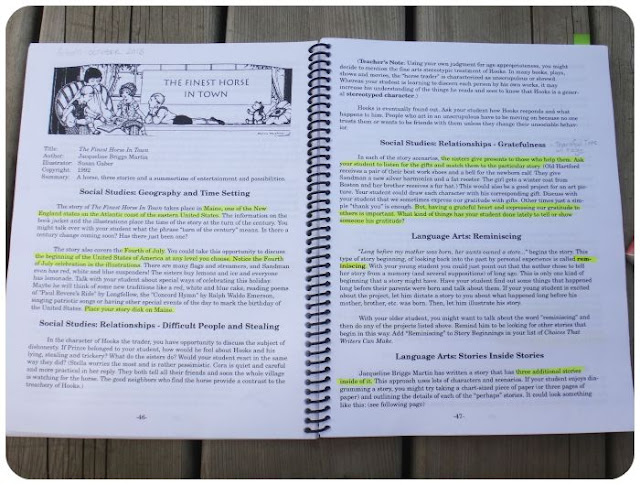 THE FINEST HORSE
IN TOWN
Title: The Finest Horse In Town
Author: Jacqueline Briggs Martin
Illustrator: Susan Gaber
Copyright: 1992
Summary: A horse, three stories and a summertime of entertainment and possibilities.
Social Studies: Geography and Time Setting
The story of The Finest Horse in Town takes place in Maine, one of the New
England states on the Atlantic coast of the eastern United States. The information on the
book jacket and the illustrations place the time of the story at the turn of the century. You
might talk over with your student what the phrase "turn of the century" means. Is there a
century change coming soon? Has there just been one?
The story also covers the Fourth of July. You could take this opportunity to discuss
the beginning of the United States of America at any level you choose. Notice the Fourth
of July celebration in the illustrations. There are many flags and streamers, and Sandman
even has red, white and blue suspenders! The sisters buy lemons and ice and everyone
has lemonade. Talk with your student about special ways of celebrating this holiday.
Maybe he will think of some new traditions like a red, white and blue cake, reading poems
of "Paul Revere's Ride" by Longfellow, the "Concord Hymn" by Ralph Waldo Emerson,
singing patriotic songs or having other special events of the day to mark the birthday of
the United States. Place your story disk on Maine.
Social Studies: Relationships - Difficult People and Stealing
In the character of Hooks the trader, you have opportunity to discuss the subject of
dishonesty. If Prince belonged to your student, how would he feel about Hooks and his
lying, stealing and trickery? What do the sisters do? Would your student react in the same
way they do? (Stella worries the most and is rather pessimistic. Cora is quiet and careful
and more practical in her reply. They both tell all their friends and soon the whole village
is watching for the horse. The good neighbors who find the horse provide a contrast to the
treachery of Hooks.)
-46-
(Teacher's Note: Using your own judgment for age appropriateness, you might
decide to mention the fine arts stereotypic treatment of Hooks. In many books, plays,
shows and movies, the "horse trader" is characterized as unscrupulous or shrewd.
Whereas your student is learning to discern each person by his own works, it may
increase his understanding of things he reads and sees to know that Hooks is a gener-
al stereotyped character.)
Hooks is eventually found out. Ask your student how Hooks responds and what
happens to him. People who act in an unscrupulous have to be moving on because no one
trusts them or wants to be friends with them unless they change their unsuitable behav-
ior.
Social Studies: Relationships - Gratefulness
In each of the story scenarios, the sisters give presents to those who help them. Ask
your student to listen for the gifts and match them to the particular story. (Old Hartford
receives a pair of their best work shoes and a bell for the newborn calf. They give
Sandman a new silver harmonica and a fat rooster. The girl gets a winter coat from
Boston and hay brother receives a fur hat.) This would also be a good project for an art pic-
ture. Your student could draw each character with his corresponding gift. Discuss with
your student that we sometimes express our gratitude with gifts. Other times just a sim-
ple "thank you" is enough. But, having a grateful heart and expressing our gratitude to
others is important. What kind of things has your student done lately to tell or show
someone his gratitude?
Language Arts: Reminiscing
"Long before my mother was born, her aunts owned a store..." begins the story. This
type of story beginning, of looking back into the past by personal experience is called rem-
iniscing. With your young student you could just point out that the author chose to tell
her story from a memory (and several suppositions) of long ago. This is only one kind of
beginning that a story might have. Have your student find out some things that happened
long before their parents were born and talk about them. If your young student is excited
about the project, let him dictate a story to you about what happened long before his
mother, brother, etc. was born. Then, let him illustrate his story.
With your older student, you might want to talk about the word "reminiscing" and
then do any of the projects listed above. Remind him to be looking for other stories that
begin in this way. Add "Reminiscing" to Story Beginnings in your list of Choices That
Writers Can Make.
Language Arts: Stories Inside Stories
Jacqueline Briggs Martin has written a story that has three additional stories
inside of it. This approach uses lots of characters and scenarios. If your student enjoys dia-
gramming a story, you might try taking a chart-sized piece of paper (or three pages of
paper) and outlining the details of each of the "perhaps" stories. It could look something
like this: (see following page)
-47-